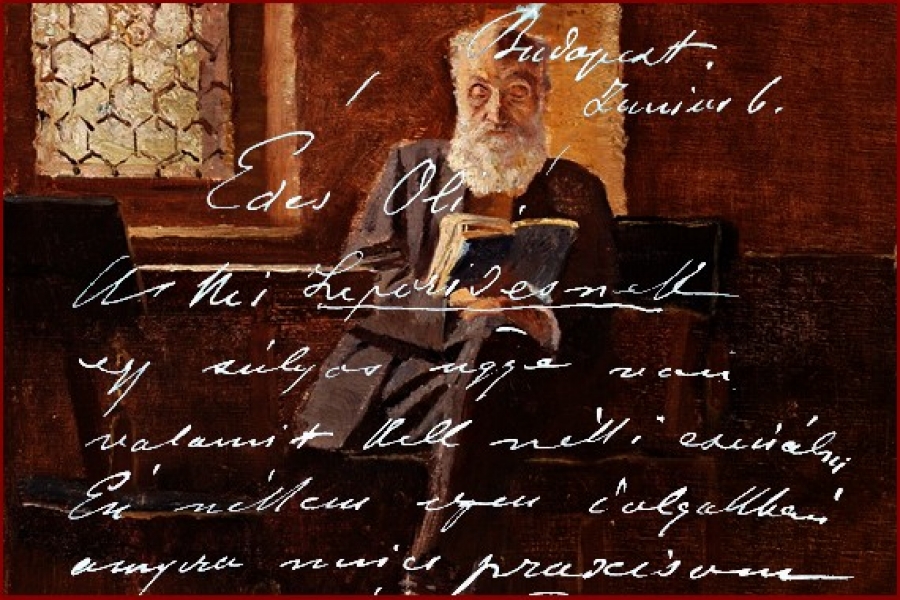 Budapest.
Junius 6.
Edes Oli!
egy súlyos ügye van
valamit kell csinálni
Én nékem ilyen dolgokban
annyira nincs praxisom